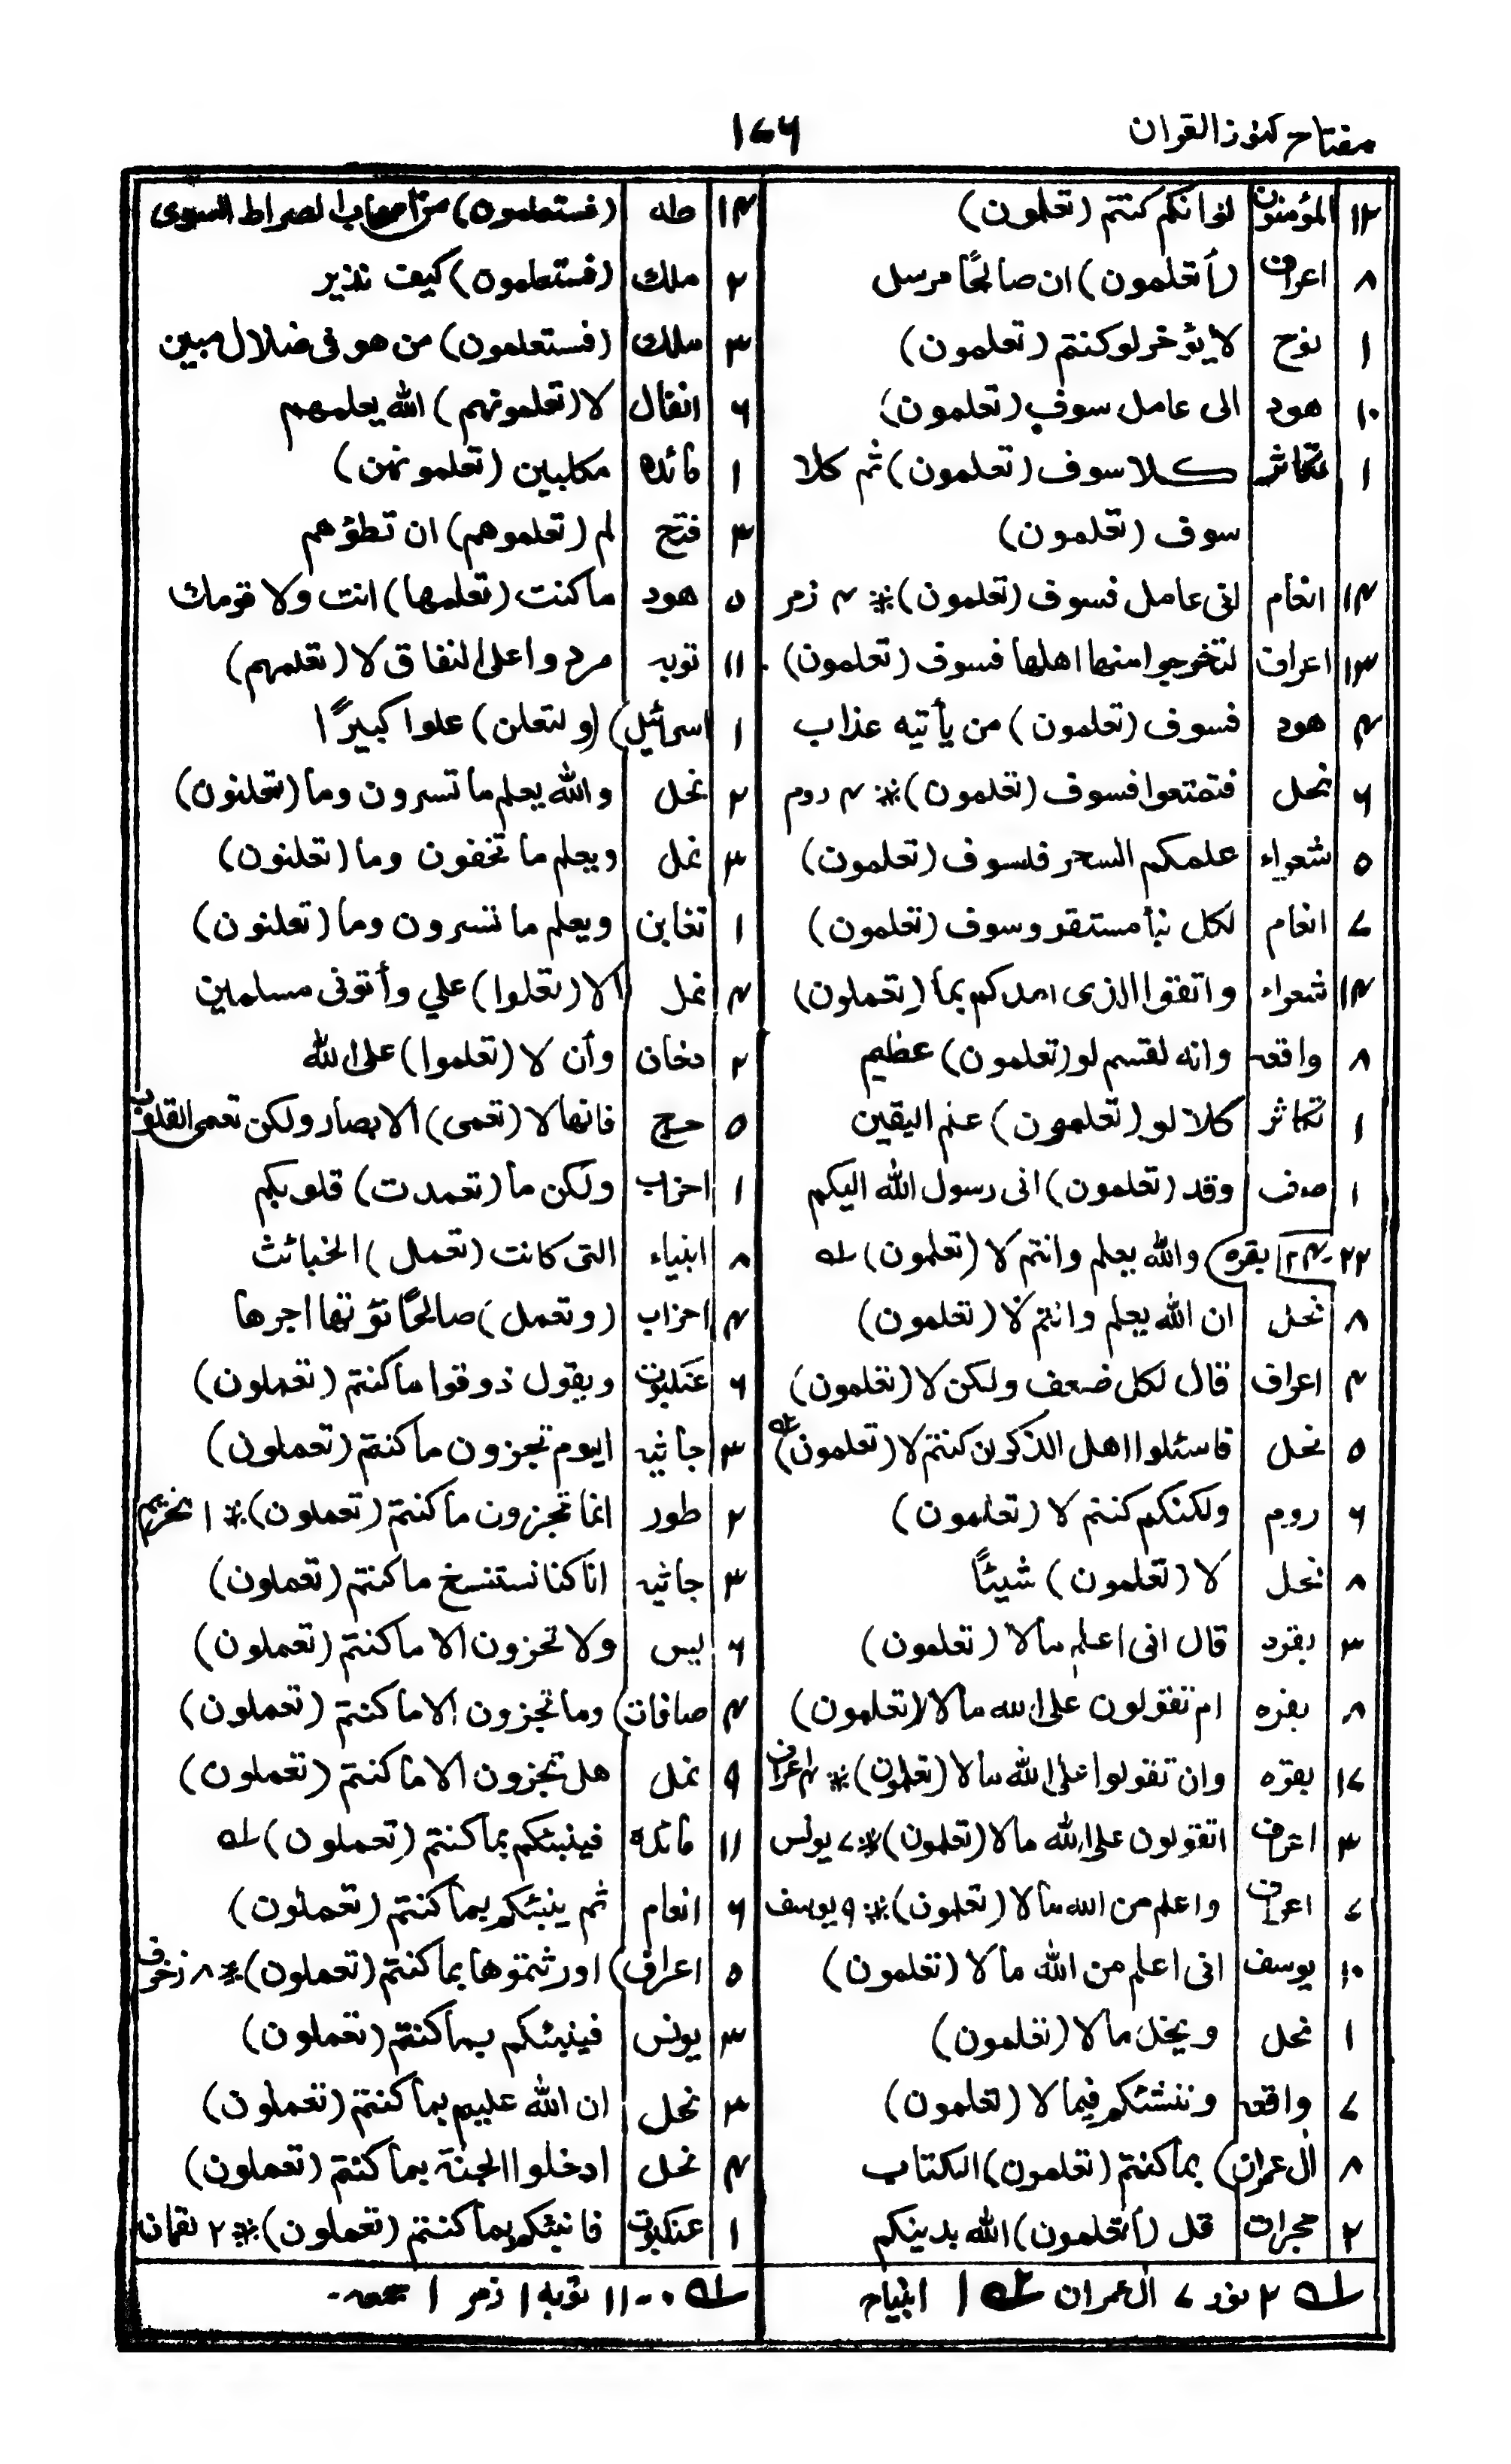 مفتاح كنوز القران
۱۷۶
۱۲ المؤمنون لوانكم كنتم (تعلمون)
۸ اعراف (أتعلمون) ان صالحًا مرسل
۱ نوح لا يؤخر لو كنتم (تعلمون)
۱۰ هود انى عامل سوف (تعلمون)
۱ تكاثر كلا سوف (تعلمون) ثم كلا
سوف (تعلمون)
۱۴ انعام انى عامل فسوف (تعلمون) * ۴ زمر
۱۳ اعراف لتخرجوا منها اهلها فسوف (تعلمون)
۴ هود فسوف (تعلمون) من يأتيه عذاب
۶ نحل فتمتعوا فسوف (تعلمون) * ۴ روم
۵ شعراء علمكم السحر فلسوف (تعلمون)
۷ انعام لكل نبأ مستقر وسوف (تعلمون)
۱۴ شعراء واتقوا الذى امدكم بما (تعملون)
۸ واقعه وانه لقسم لو (تعلمون) عظيم
۱ تكاثر كلا لو (تعلمون) علم اليقين
۱ صف وقد (تعلمون) انى رسول الله اليكم
۲۲-۲۴ بقره والله يعلم وانتم لا (تعلمون) ــه۱
۸ نحل ان الله يعلم وانتم لا (تعلمون)
۴ اعراف قال لكل ضعف ولكن لا (تعلمون)
۵ نحل فاسئلوا اهل الذكر ان كنتم لا (تعلمون) ــه۲
۶ روم ولكنكم كنتم لا (تعلمون)
۸ نحل لا (تعلمون) شيئًا
۳ بقره قال انى اعلم ما لا (تعلمون)
۸ بقره ام تقولون على الله ما لا (تعلمون)
۱۷ بقره وان تقولوا على الله ما لا (تعلمون) * ۴ اعراف
۳ اعراف اتقولون على الله ما لا (تعلمون) * ۷ يونس
۷ اعراف واعلم من الله ما لا (تعلمون) * ۹ يوسف
۱۰ يوسف انى اعلم من الله ما لا (تعلمون)
۱ نحل ويخلق ما لا (تعلمون)
۷ واقعه وننشئكم فيما لا (تعلمون)
۸ ال عمران بما كنتم (تعلمون) الكتاب
۲ حجرات قل (أتعلمون) الله بدينكم
ــه۱ ۲ نور ۷ ال عمران ــه۲ ۱ انبياء
۱۴ طه (فستعلمون) من أصحاب الصراط السوى
۲ ملك (فستعلمون) كيف نذير
۳ ملك (فستعلمون) من هو فى ضلال مبين
۶ انفال لا (تعلمونهم) الله يعلمهم
۱ مائده مكلبين (تعلمونهن)
۳ فتح لم (تعلموهم) ان تطؤهم
۵ هود ما كنت (تعلمها) انت ولا قومك
۱۱ توبه مردوا على النفاق لا (تعلمهم)
۱ اسرائيل (ولتعلن) علوا كبيرًا
۲ نحل والله يعلم ما تسرون وما (تعلنون)
۳ نمل ويعلم ما تخفون وما (تعلنون)
۱ تغابن ويعلم ما تسرون وما (تعلنون)
۴ نمل الا (تعلوا) علي وأتونى مسلمين
۲ دخان وأن لا (تعلموا) على الله
۵ حج فانها لا (تعمى) الابصار ولكن تعمى القلوب
۱ احزاب ولكن ما (تعمدت) قلوبكم
۸ ابنياء التى كانت (تعمل) الخبائث
۴ احزاب (وتعمل) صالحًا نؤتها اجرها
۶ عنكبوت ويقول ذوقوا ما كنتم (تعملون)
۳ جاثيه اليوم تجزون ما كنتم (تعملون)
۲ طور انما تجزون ما كنتم (تعملون) * ۱ تحريم
۳ جاثيه انا كنا نستنسخ ما كنتم (تعملون)
۶ يس ولا تجزون الا ما كنتم (تعملون)
۴ صافات وما تجزون الا ما كنتم (تعملون)
۹ نمل هل تجزون الا ما كنتم (تعملون)
۱۱ مائده فينبئكم بما كنتم (تعملون) ــه۱
۶ انعام ثم ينبئكم بما كنتم (تعملون)
۵ اعراف اورثتموها بما كنتم (تعملون) * ۸ زخرف
۳ يونس فينبئكم بما كنتم (تعملون)
۳ نحل ان الله عليم بما كنتم (تعملون)
۴ نحل ادخلوا الجنة بما كنتم (تعملون)
۱ عنكبوت فانبئكم بما كنتم (تعملون) * ۲ لقمان
ــه۱ ۱۱ توبه ۱ زمر ۱ جمعه